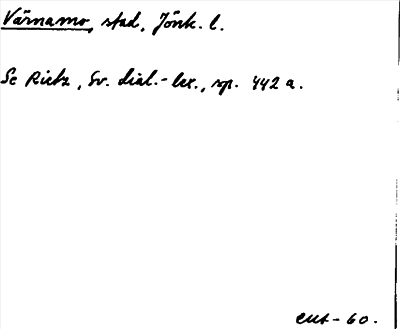 Värnamo, stad, Jönk. l.
Se Rietz, Sv. dial.-lex., sp. 442 a.